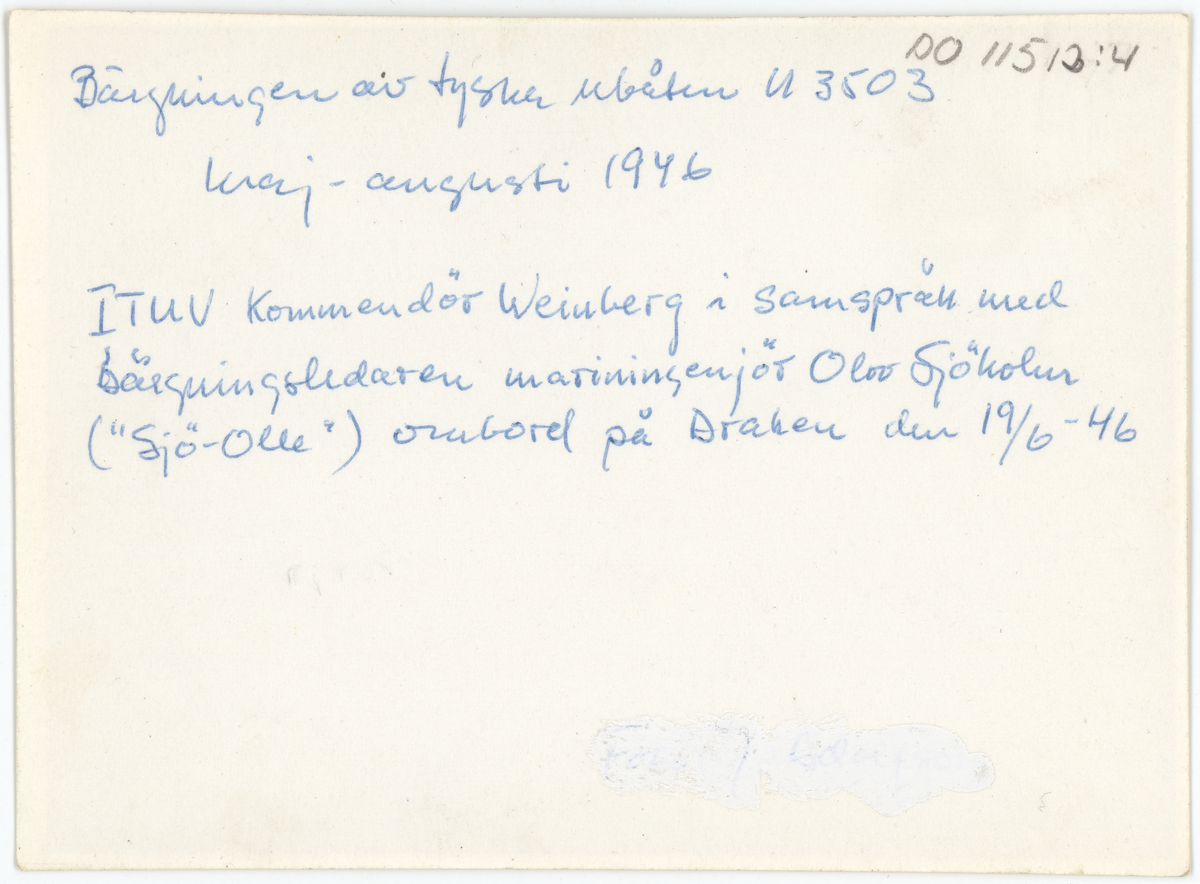 DO 11512:4
Bärgningen av tyska ubåten U 3503
maj - augusti 1946
ITUV Kommendör Weinberg i samspråk med
bärgningsledaren mariningenjör Olov Sjöholm
("Sjö-Olle") ombord på Draken den 19/6-46